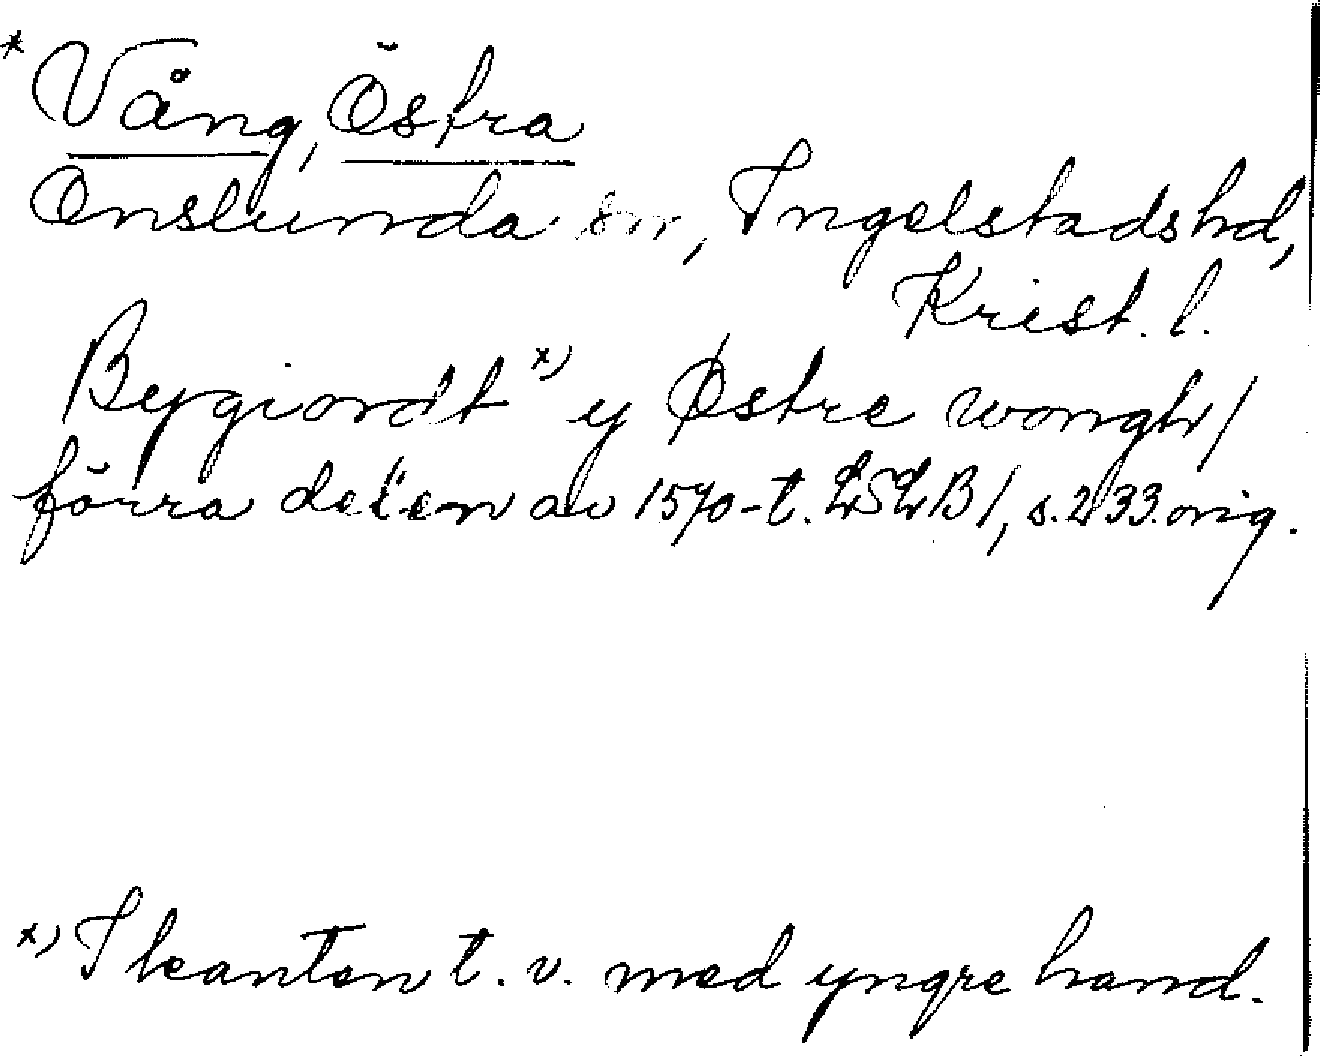 *Vång, Östra
Onslunda sn, Ingelstads hd,
Krist. l.
Bygiordt *) y Østre wongh/
förra delen av 1570-t. LSLB/, s. 233 orig.
*) I kanten t. v. med yngre hand.